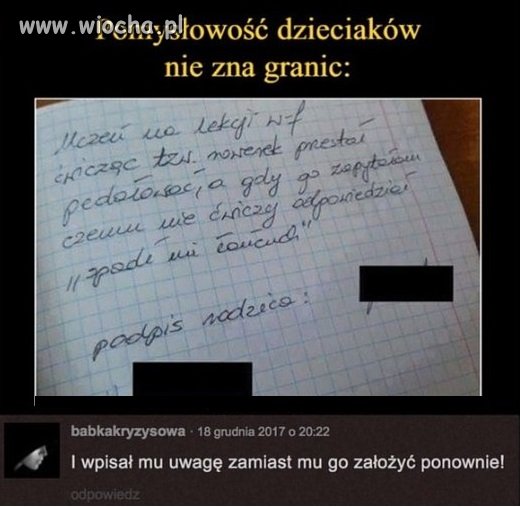 www.wiocha.pl
Pomysłowość dzieciaków
nie zna granic:
Uczeń na lekcji w-f
ćwicząc tzw. rowerek przestał
pedałować, a gdy go zapytałam
czemu nie ćwiczy odpowiedział
"spadł mi łańcuch"
podpis rodzica:
babkakryzysowa · 18 grudnia 2017 o 20:22
I wpisał mu uwagę zamiast mu go założyć ponownie!
odpowiedz